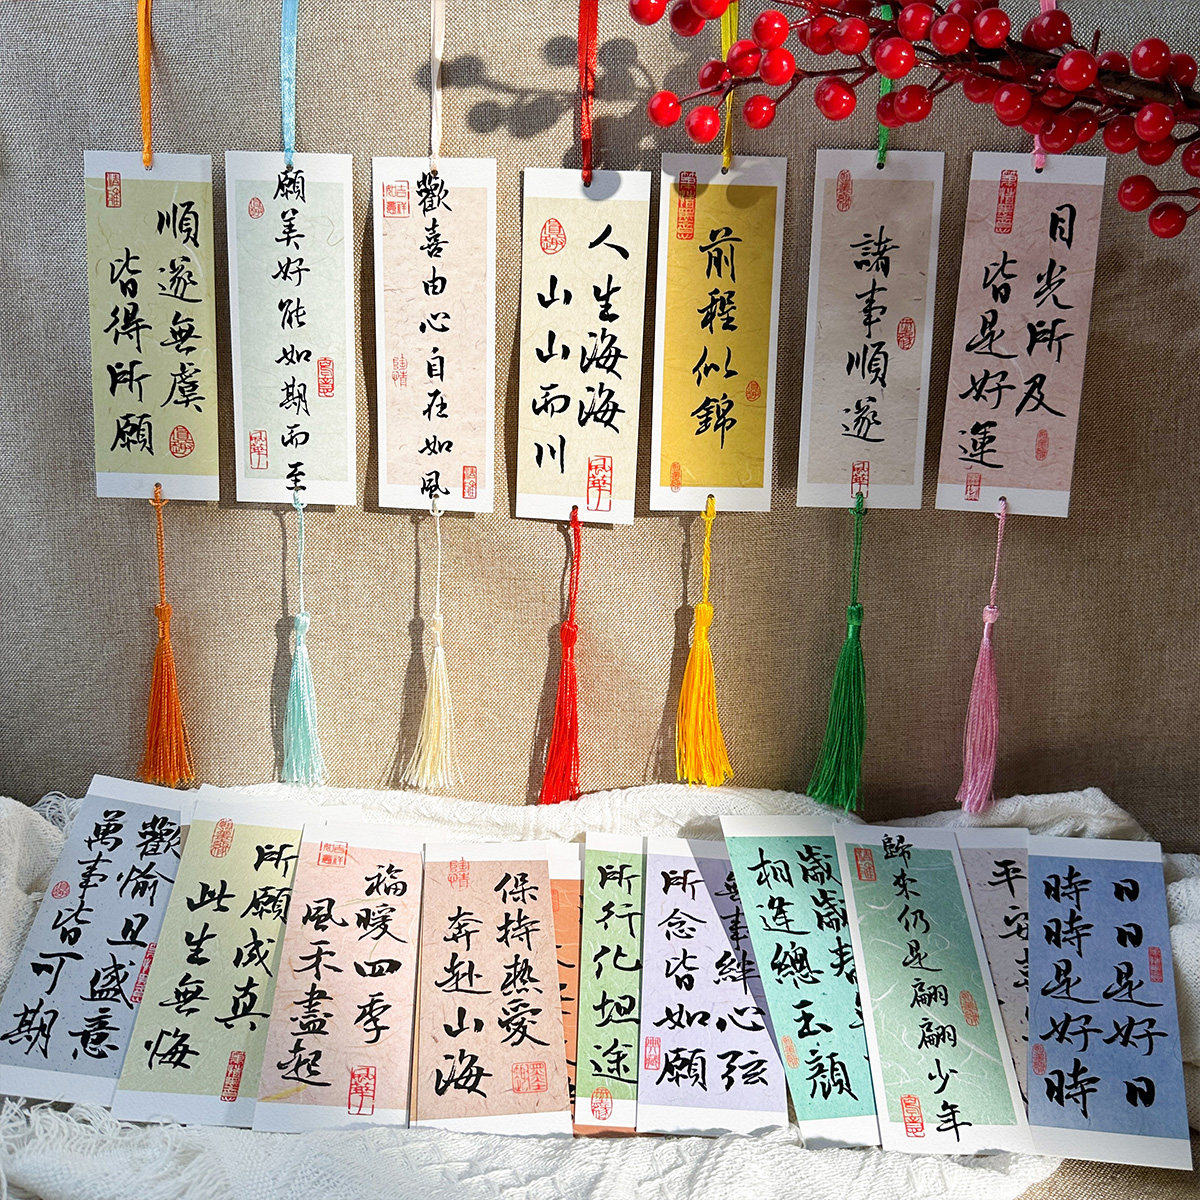 順遂無虞
皆得所願
願美好能如期而至
歡喜由心自在如風
人生海海
山山而川
前程似錦
諸事順遂
目光所及
皆是好運
歡愉且盛意
萬事皆可期
所願成真
此生無悔
福暖四季
風禾盡起
保持热愛
奔赴山海
所行化坦途
無事絆心弦
所念皆如願
歲歲春
相逢總玉顔
歸來仍是翩翩少年
平安喜
日日是好日
時時是好時